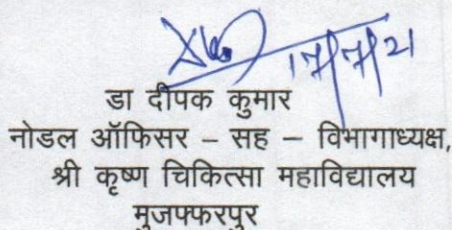 17/7/21
डा दीपक कुमार
नोडल ऑफिसर – सह – विभागाध्यक्ष,
श्री कृष्ण चिकित्सा महाविद्यालय
मुजफ्फरपुर